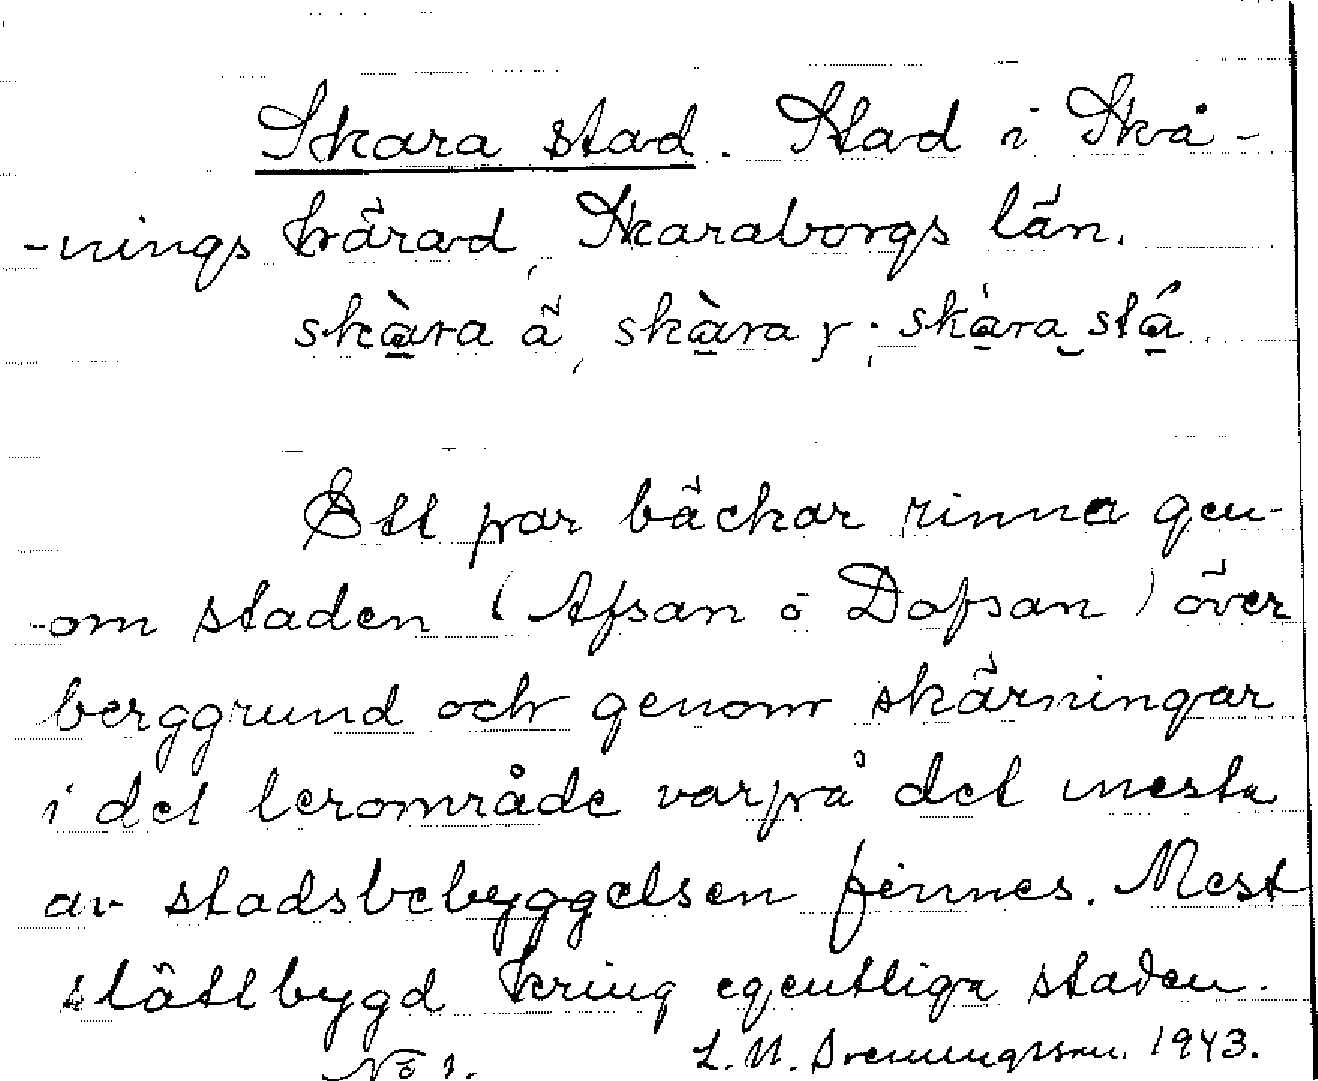 Skara stad. Stad i Skå-
-nings härad, Skaraborgs län.
skàra ä̀, skàra r; skàra stá
Ett par bäckar rinna gen-
-om staden (Afsan o Dofsan) över
berggrund och genom skärningar
i det lerområde varpå det mesta
av stadsbebyggelsen finnes. Mest
slättbygd kring egentliga staden.
L. N. 1943.